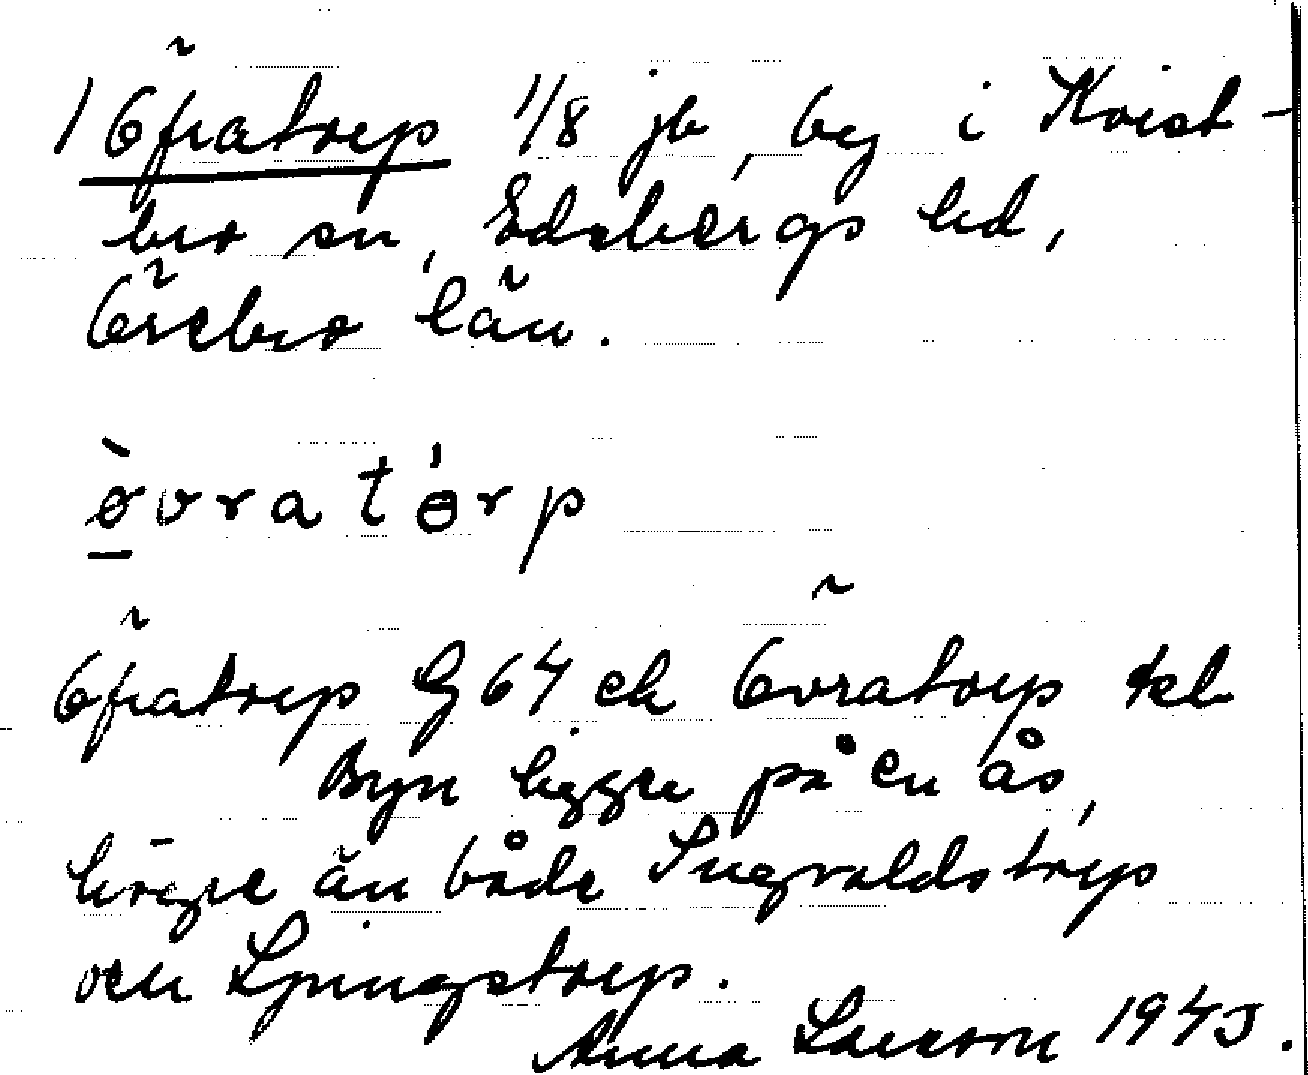 1 Öfratorp 1/8 jb, by i Kvist-
bro sn, Edsbergs hd,
Örebro län.
òvratórp
Öfratorp G 64 ek Övratorp kl
Byn ligger på en ås,
högre än både Ingvaldstorp
och Ljungstorp.
Anna Larsson 1945.